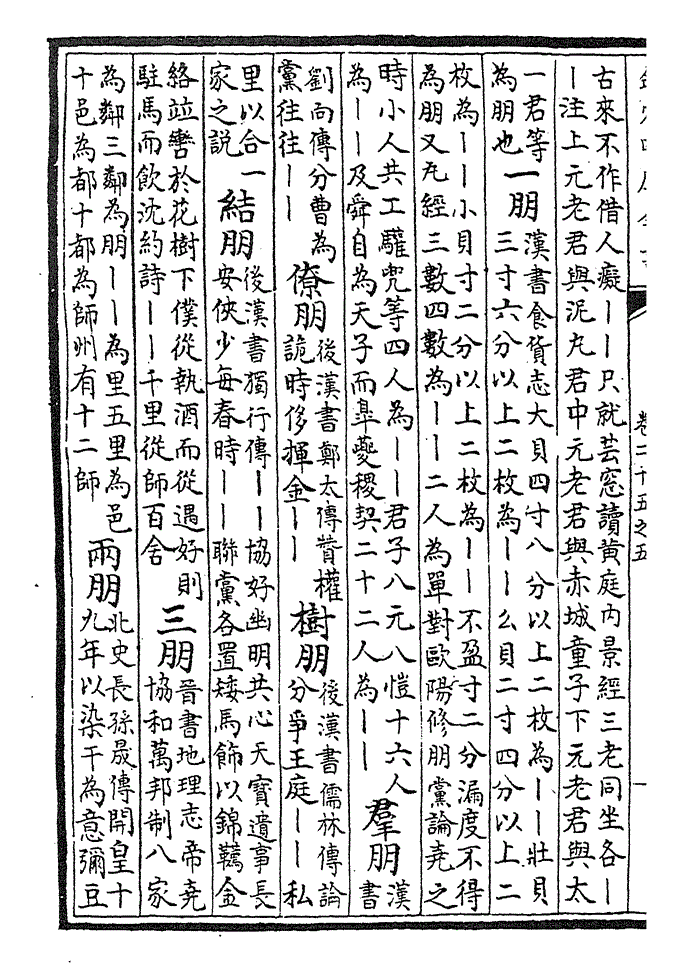 卷二十五之五
古來不作借人癡〡〡只就芸窓讀黄庭内景經三老同坐各〡
〡注上元老君與泥丸君中元老君與赤城童子下元老君與太
一君等
為朋也
一朋
漢書食貨志大貝四寸八分以上二枚為〡〡壯貝
三寸六分以上二枚為〡〡么貝二寸四分以上二
枚為〡〡小貝寸二分以上二枚為〡〡不盈寸二分漏度不得
為朋又尢經三數四數為〡〡二人為單對歐陽修朋黨論堯之
時小人共工驩兜等四人為〡〡君子八元八愷十六人
為〡〡及舜自為天子而臯夔稷契二十二人為〡〡
羣朋
漢
書
劉向傳分曹為
黨往往〡〡
僚朋
後漢書鄭太傳贊權
詭時侈揮金〡〡
樹朋
後漢書儒林傳論
分爭王庭〡〡私
里以合一
家之説
結朋
後漢書獨行傳〡〡協好幽明共心天寳遺事長
安俠少每春時〡〡聯黨各置矮馬飾以錦韉金
絡竝轡於花樹下僕從執酒而從遇好則
駐馬而飲沈約詩〡〡千里從師百舍
三朋
晉書地理志帝堯
協和萬邦制八家
為鄰三鄰為朋〡〡為里五里為邑
十邑為都十都為師州有十二師
兩朋
北史長孫晟傳開皇十
九年以染干為意彌豆